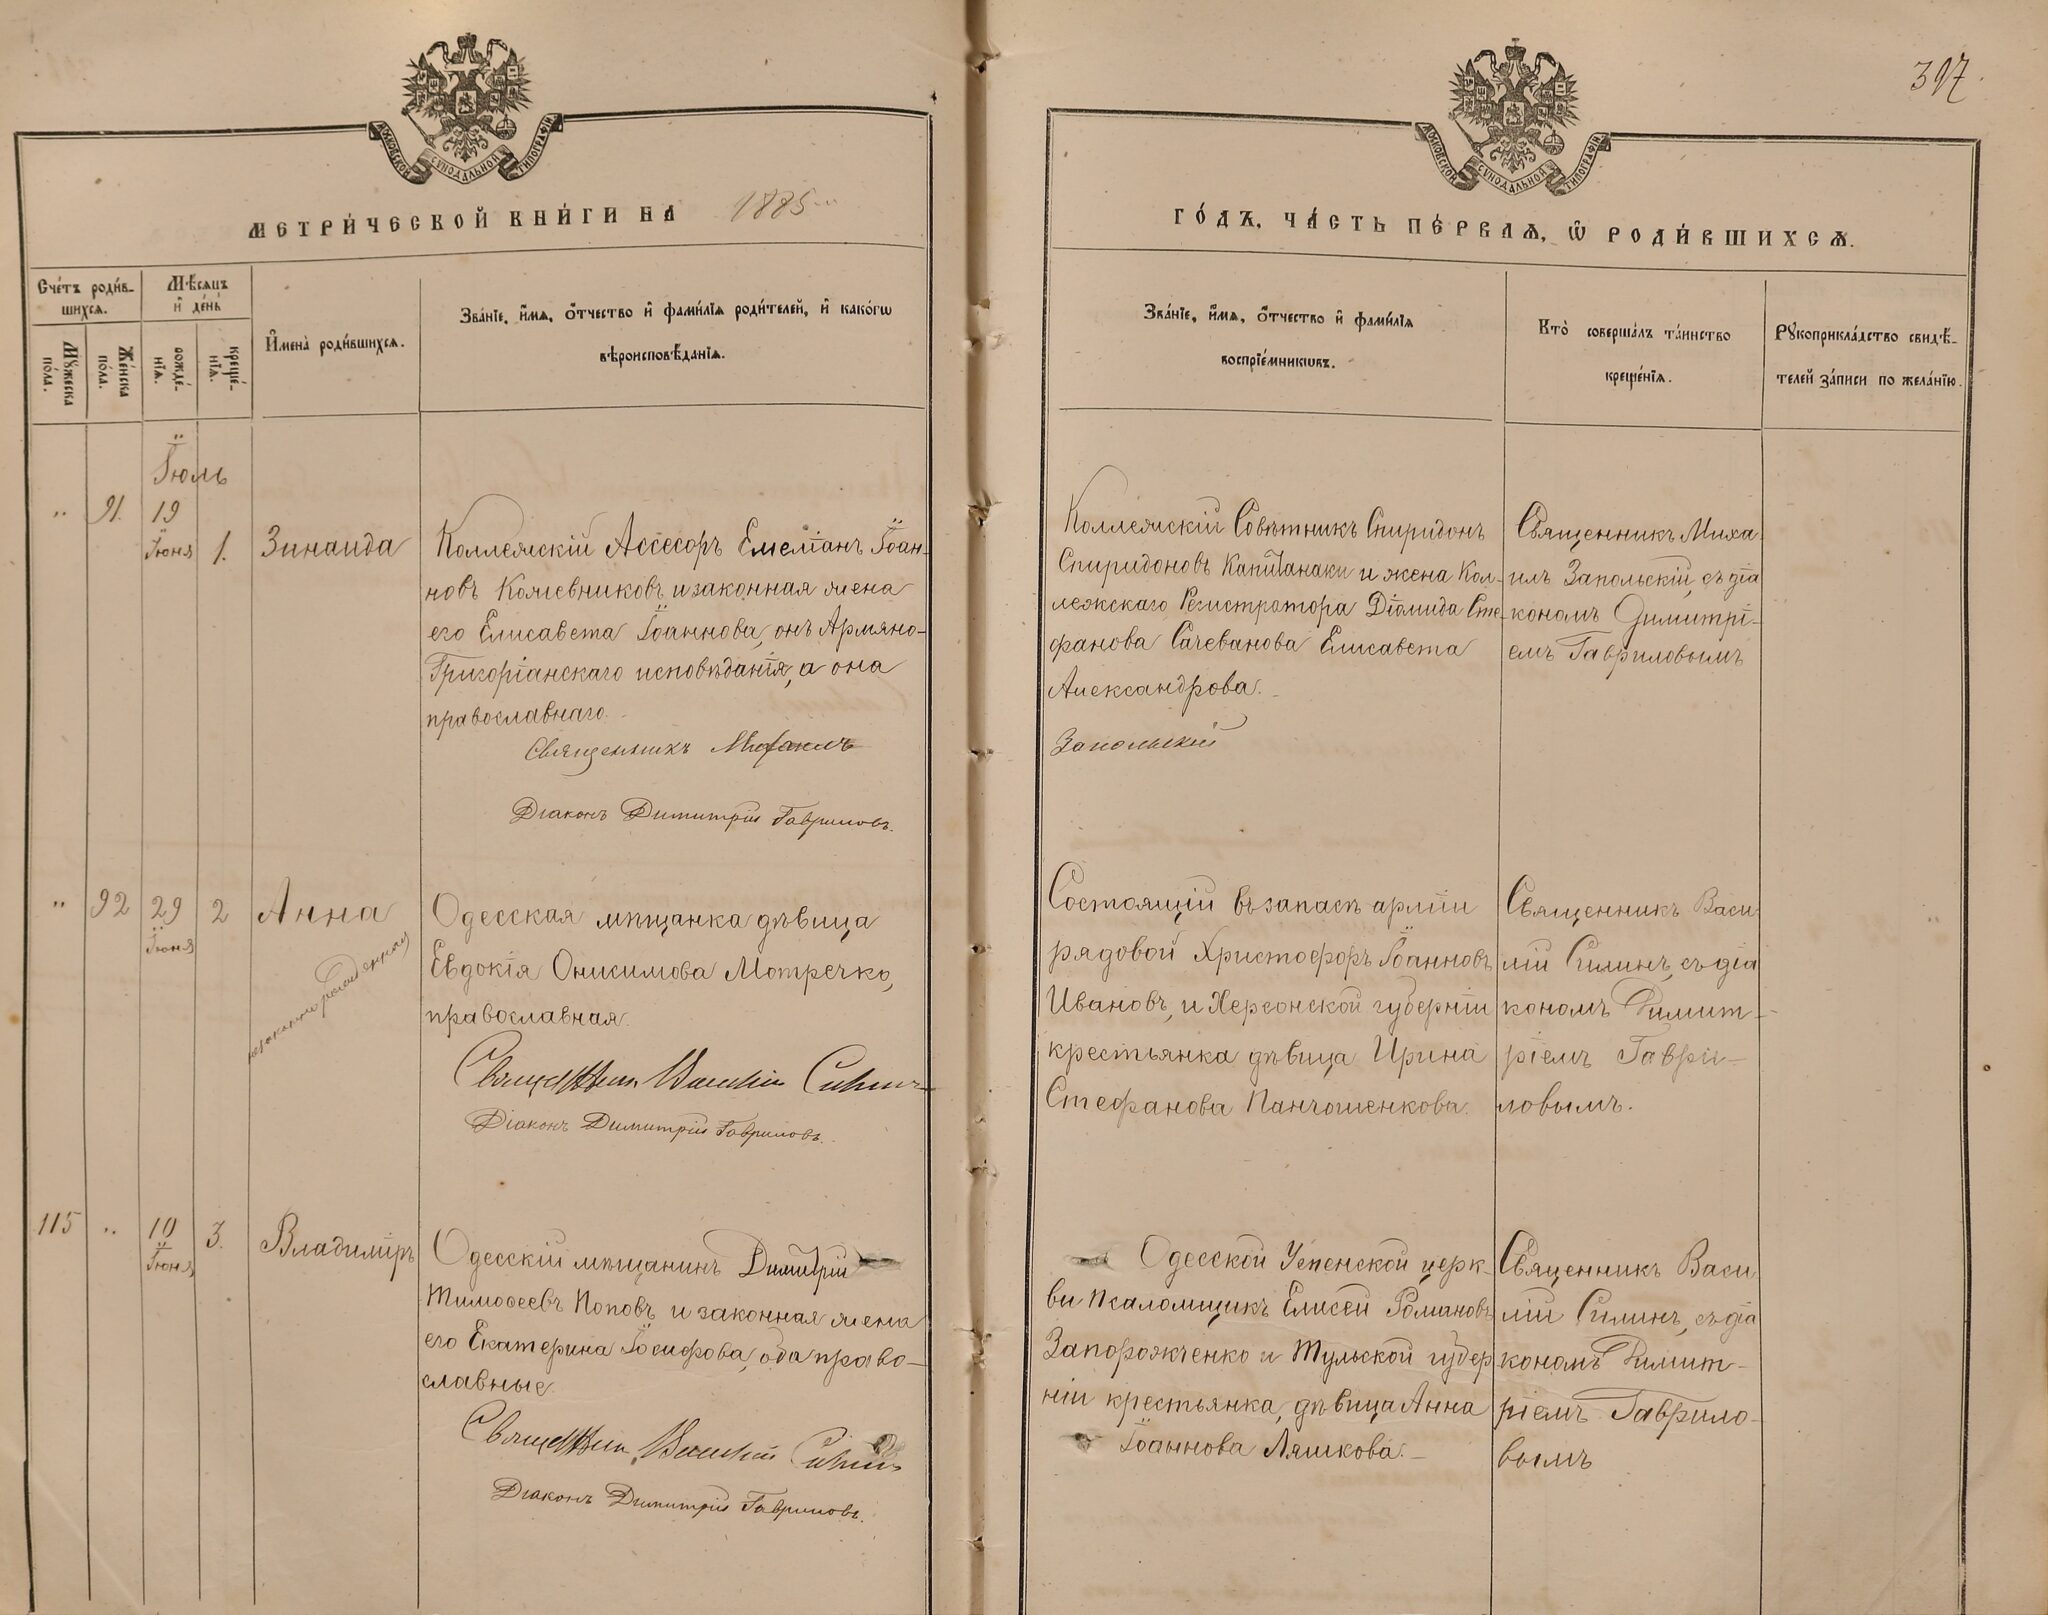 397.
МОСКОВСКОЙ СУНОДАЛЬНОЙ ТИПОГРАФІИ
МОСКОВСКОЙ СУНОДАЛЬНОЙ ТИПОГРАФІИ
МЕТРИ́ЧЕСКОЙ КНИ́ГИ НА 1885
ГО́ДЪ, ЧА́СТЬ ПЕ́РВАѦ, Ѡ РОДИ́ВШИХСѦ.
Сче́тъ роди́в-
шихсѧ.
Му́жеска
по́ла.
Же́нска
по́ла.
Мѣ́сѧцъ
и де́нь
рожде́-
нїѧ.
креще́-
нїѧ.
Имена̀ роди́вшихсѧ.
Зва́нїе, и́мѧ, о́тчество и фами́лїѧ роди́телей, и како́гѡ
вѣроисповѣ́данїѧ.
Зва́нїе, и́мѧ, о́тчество и фами́лїѧ
воспрїе́мникѡвъ.
Кто̀ соверша́лъ та́инство
креще́нїѧ.
Рꙋкоприкла́дство свидѣ́-
телей за́писи по жела́нїю.
Іюль
" 91. 19 Іюня 1. Зинаида
Коллежскій Ассесоръ Емеліанъ Іоан-
новъ Кожевниковъ и законная жена
его Елисавета Іоаннова, онъ Армяно-
Григоріанскаго исповѣданія, а она
православнаго.
Священникъ Михаилъ
Діаконъ Димитрій Гавриловъ.
Коллежскій Совѣтникъ Спиридонъ
Спиридоновъ Капитанаки и жена Кол-
лежскаго Регистратора Діомида Сте-
фанова Сачеванова Елисавета
Александрова.
Запольскій
Священникъ Миха-
илъ Запольскій, съ діа
кономъ Димитрі-
емъ Гавриловымъ
" 92 29 Іюня 2 Анна
незаконнорожденная
Одесская мѣщанка дѣвица
Евдокія Онисимова Мотречко,
православная.
Священникъ Василій Силинъ
Діаконъ Димитрій Гавриловъ.
Состоящій въ запасѣ арміи
рядовой Христофоръ Іоанновъ
Ивановъ, и Херсонской губерніи
крестьянка дѣвица Ирина
Стефанова Панчошенкова.
Священникъ Васи
лій Силинъ, съ діа
кономъ Димит-
ріемъ Гаври-
ловымъ.
115 " 10 Іюня 3. Владиміръ
Одесскій мѣщанинъ Димитрій
Тимоѳеевъ Поповъ и законная жена
его Екатерина Іосифова, оба право-
славные.
Священникъ Василій Силинъ
Діаконъ Димитрій Гавриловъ.
Одесской Успенской церк-
ви псаломщикъ Елисей Романовъ
Запорожченко и Тульской губер
ніи крестьянка, дѣвица Анна
Іоаннова Ляшкова.
Священникъ Васи
лій Силинъ, съ діа
кономъ Димит-
ріемъ Гаврило-
вымъ